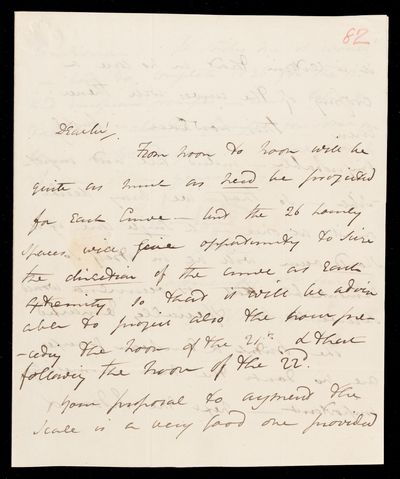 82
Dear Sir,
From noon to noon will be
quite as much as need be projected
for Each Curve — And the 26 hourly
spaces will give opportunity to
the direction of the curve at Each
Extremity so that it will be advis
able to project also the hour pre-
-ceding the noon of the 21st & that
following the noon of the 22d.
Your proposal to augment the
Scale is a very good one provided